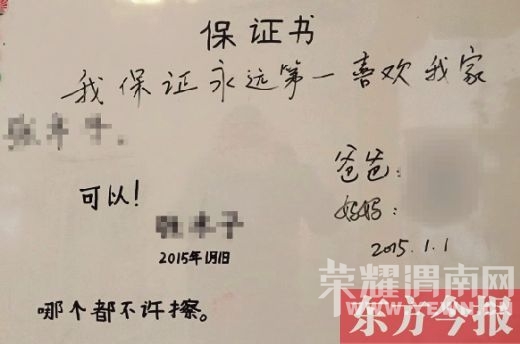 保证书
我保证永远第一喜欢我家
可以！
2015年1月1日
爸爸：
妈妈：
2015.1.1
哪个都不许擦。
荣耀渭南网
东方今报